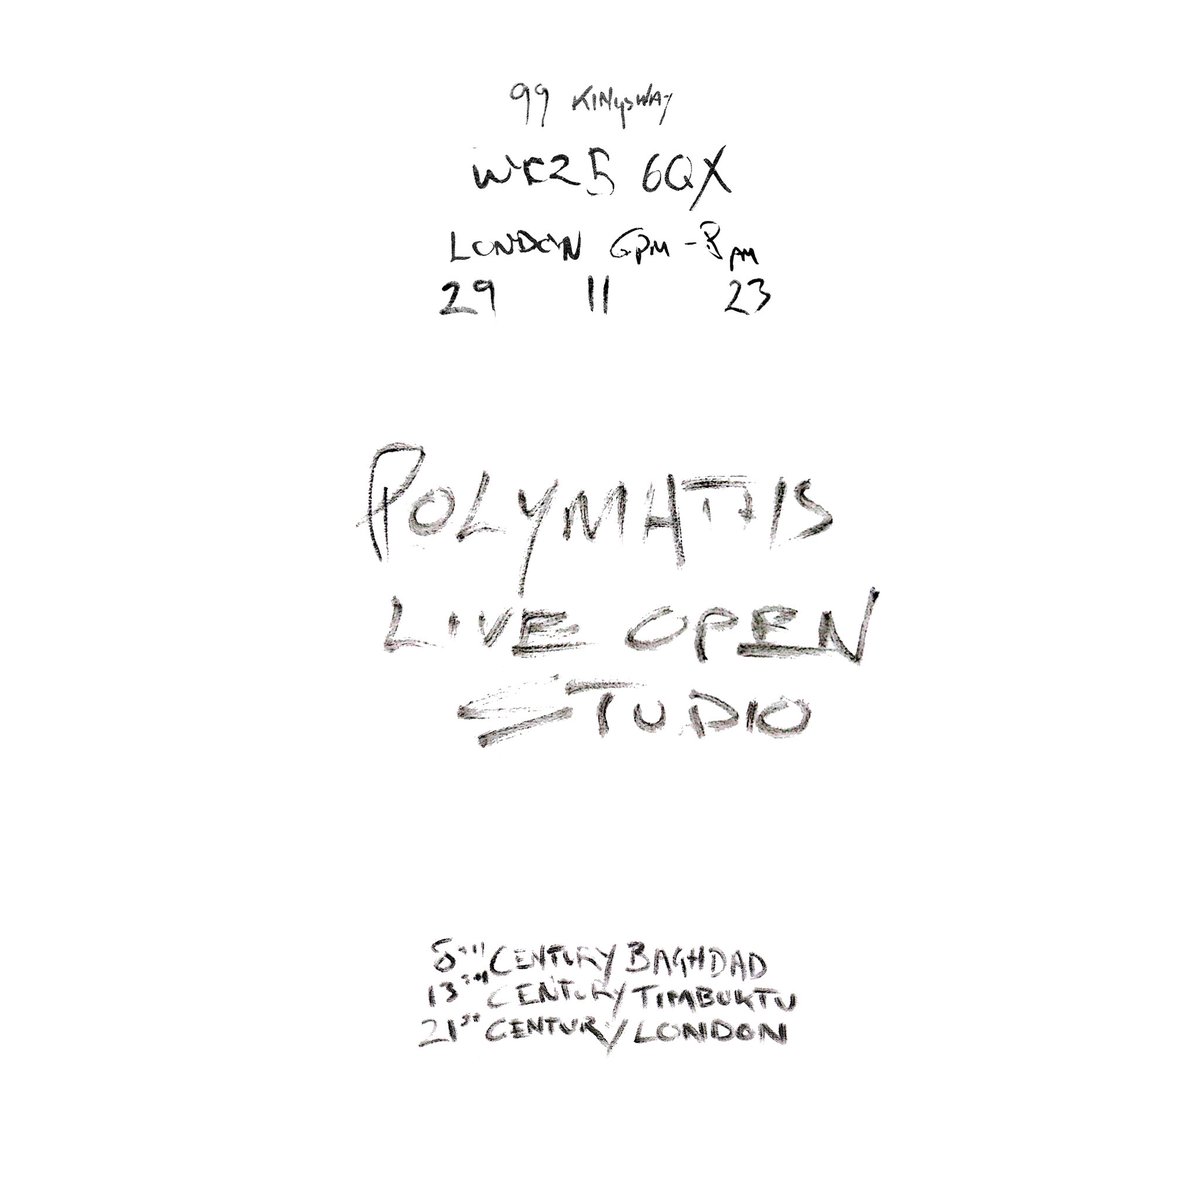 99 KINGSWAY
WC2B 6QX
LONDON 6PM - 8PM
29 11 23
POLYMATHS
LIVE OPEN
STUDIO
8TH CENTURY BAGHDAD
13TH CENTURY TIMBUKTU
21ST CENTURY LONDON